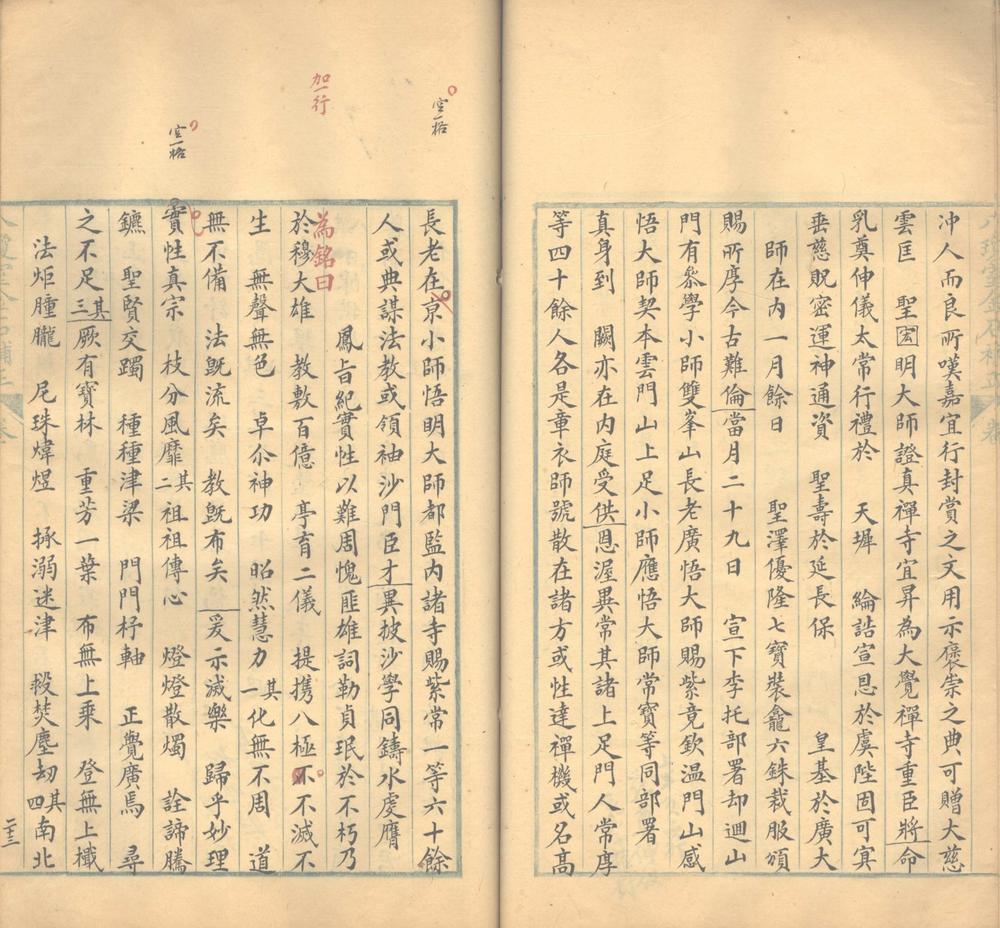 冲人而良所嘆嘉宜行封賞之文用示褒崇之典可贈大慈
雲匡　聖宏明大師證真禪寺宜昇為大覺禪寺重臣將命
乳奠伸儀太常行禮於　天墀　綸誥宣恩於虞陛固可冥
垂慈貺密運神通資　聖壽於延長保　皇基於廣大
師在內一月餘日　聖澤優隆七寶裝龕六銖栽服頒
賜所序今古難倫當月二十九日　宣下李托部署却迴山
門有叅學小師雙峯山長老廣悟大師賜紫竟欽温門山感
悟大師契本雲門山上足小師應悟大師常寶等同部署
真身到　闕亦在內庭受供恩渥異常其諸上足門人常厚
等四十餘人各是章衣師號散在諸方或性達禪機或名高
長老在京小師悟明大師都監內諸寺賜紫常一等六十餘
人或典謀法教或領袖沙門臣才異披沙學同鑄水虔膺
鳳旨紀實性以難周愧匪雄詞勒貞珉於不朽乃
為銘曰
於穆大雄　教敷百億　亭育二儀　提携八極　不不滅不
生　無聲無色　卓尒神功　昭然慧力其一化無不周　道
無不備　法既流矣　教既布矣　爰示滅樂　歸乎妙理
實性真宗　枝分風靡其二祖祖傳心　燈燈散燭　詮諦騰
鑣　聖賢交躅　種種津梁　門門杼軸　正覺廣焉　尋
之不足其三厥有寶林　重芳一葉　布無上乘　登無上檝
法炬朣朧　尼珠煒煜　拯溺迷津　救焚塵劫其四南北
二十三
空一格
加一行
空一格